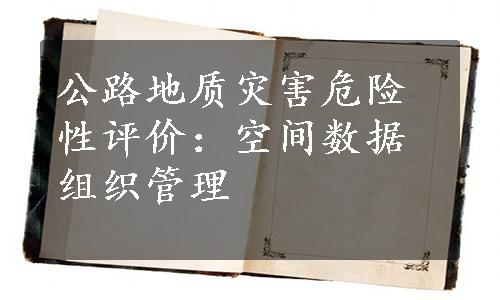 公路地质灾害危险
性评价：空间数据
组织管理